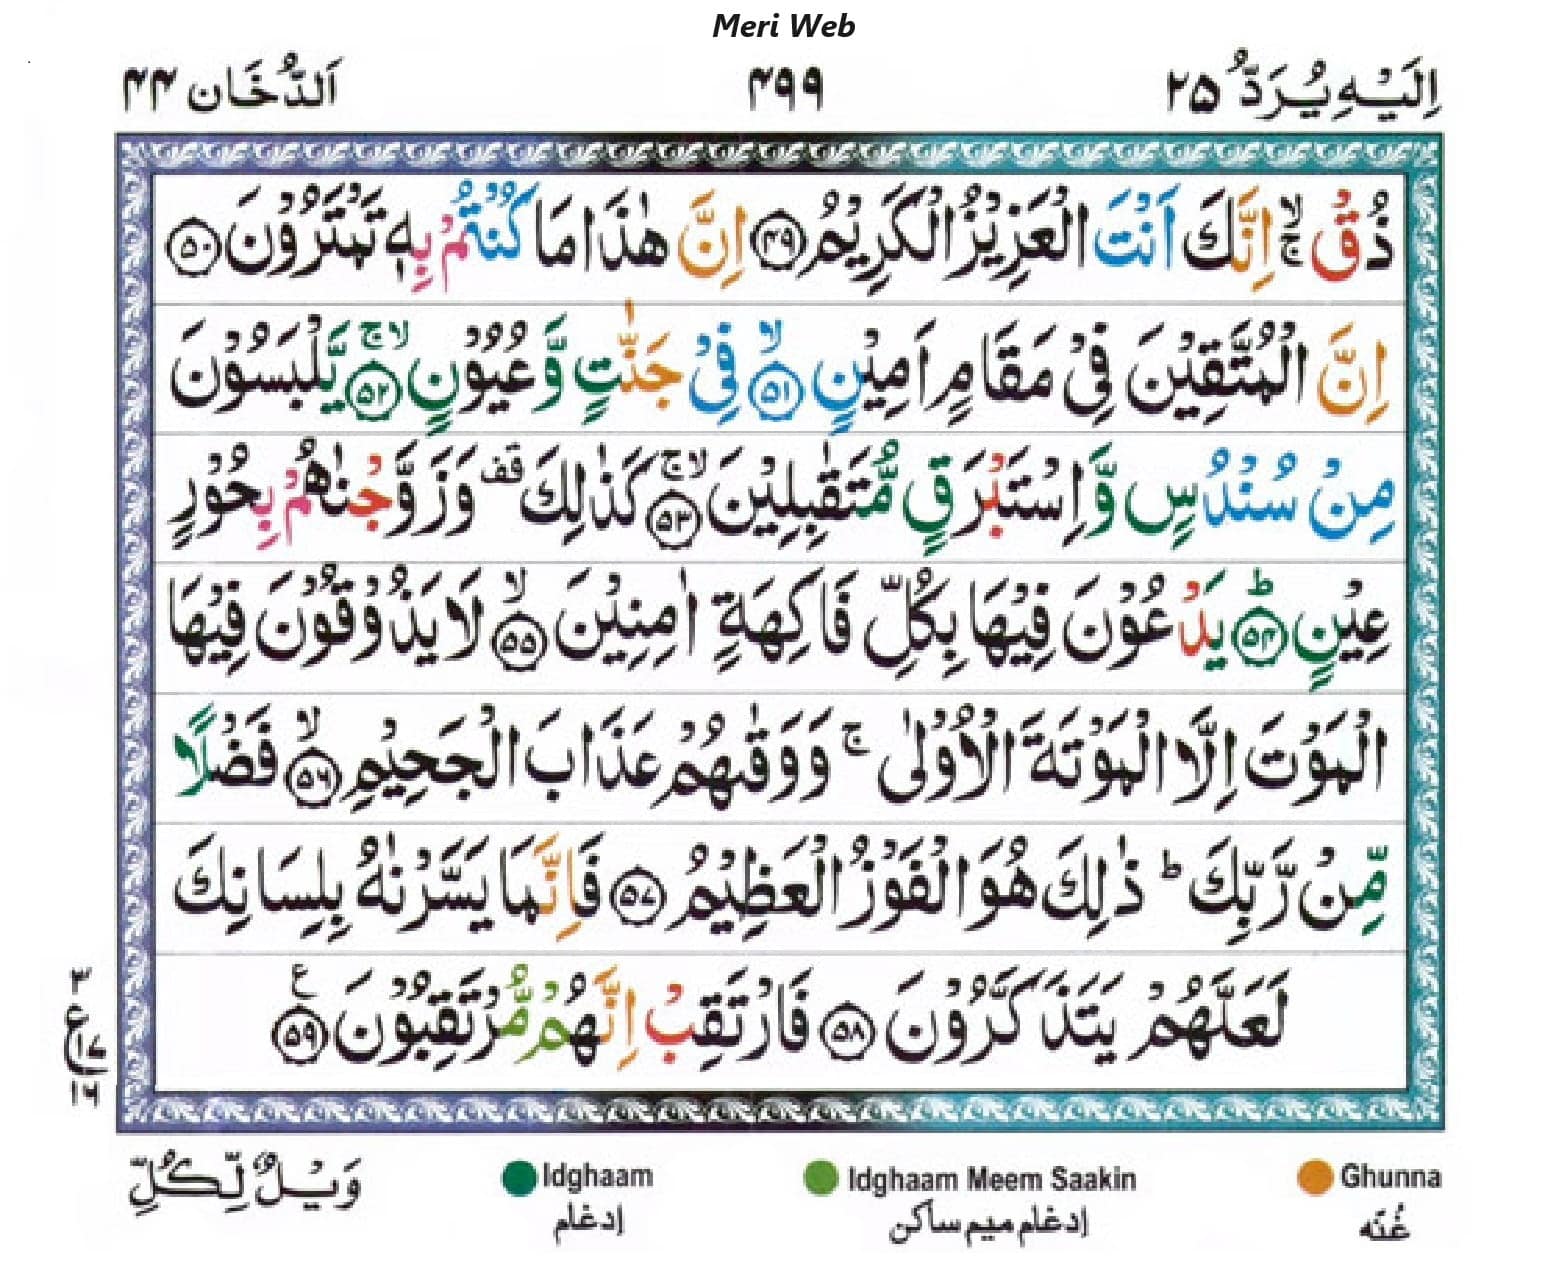 Meri Web
اِلَيْهِ يُرَدُّ ٢٥ ٤٩٩ اَلدُّخَان ٤٤
ذُقْ ۙۚ اِنَّكَ اَنْتَ الْعَزِيْزُ الْكَرِيْمُ ﴿٤٩﴾ اِنَّ هٰذَا مَا كُنْتُمْ بِهٖ تَمْتَرُوْنَ ﴿٥٠﴾
اِنَّ الْمُتَّقِيْنَ فِيْ مَقَامٍ اَمِيْنٍ ۙ﴿٥١﴾ فِيْ جَنّٰتٍ وَّعُيُوْنٍ ۙۚ﴿٥٢﴾ يَّلْبَسُوْنَ
مِنْ سُنْدُسٍ وَّاِسْتَبْرَقٍ مُّتَقٰبِلِيْنَ ۙۚ﴿٥٣﴾ كَذٰلِكَ قف وَزَوَّجْنٰهُمْ بِحُوْرٍ
عِيْنٍ ؕ﴿٥٤﴾ يَدْعُوْنَ فِيْهَا بِكُلِّ فَاكِهَةٍ اٰمِنِيْنَ ۙ﴿٥٥﴾ لَا يَذُوْقُوْنَ فِيْهَا
الْمَوْتَ اِلَّا الْمَوْتَةَ الْاُوْلٰى ۚ وَوَقٰىهُمْ عَذَابَ الْجَحِيْمِ ۙ﴿٥٦﴾ فَضْلًا
مِّنْ رَّبِّكَ ؕ ذٰلِكَ هُوَ الْفَوْزُ الْعَظِيْمُ ﴿٥٧﴾ فَاِنَّمَا يَسَّرْنٰهُ بِلِسَانِكَ
لَعَلَّهُمْ يَتَذَكَّرُوْنَ ﴿٥٨﴾ فَارْتَقِبْ اِنَّهُمْ مُّرْتَقِبُوْنَ ﴿٥٩﴾ ع
٣
ع ١٧
١٦
Idghaam Idghaam Meem Saakin Ghunna
وَيْلٌ لِّكُلِّ
إدغام إدغام ميم ساكن غُنّه